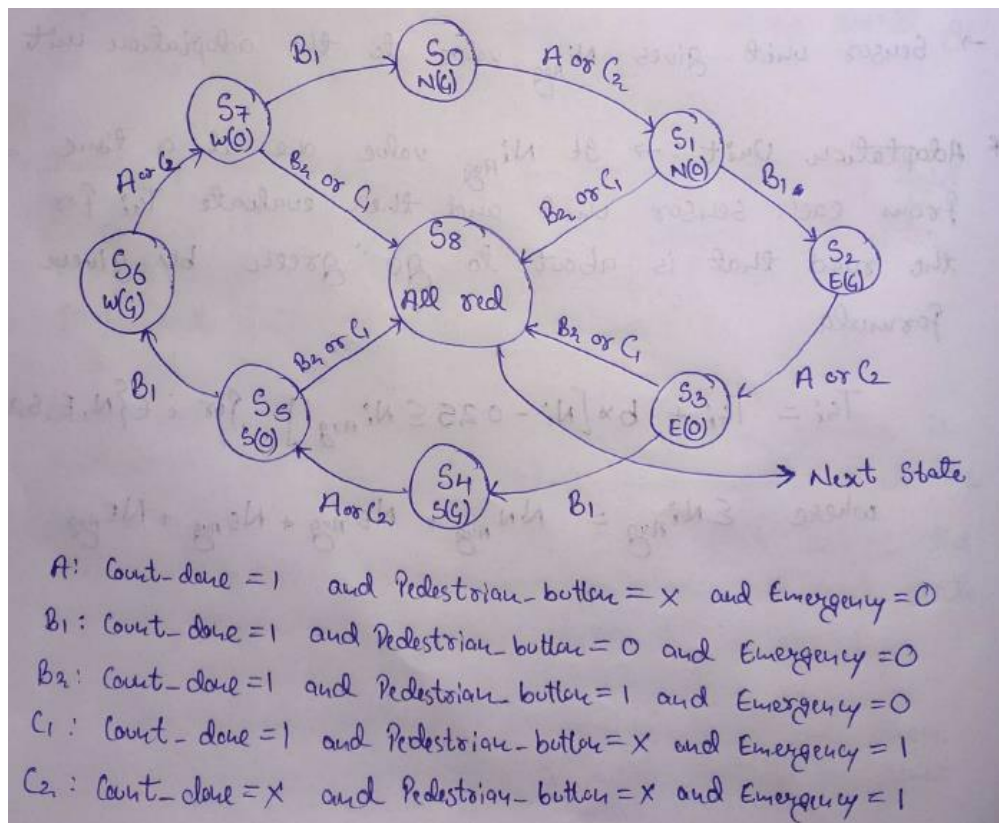 B1
S0
N(G)
A or C2
S7
W(O)
S1
N(O)
A or C2
B2 or C1
B2 or C1
B1
S8
All red
S2
E(G)
S6
W(G)
B2 or C1
B2 or C1
A or C2
B1
S5
S(O)
S3
E(O)
S4
S(G)
A or C2
B1
Next State
A: Count_done = 1 and Pedestrian_button = X and Emergency = 0
B1: Count_done = 1 and Pedestrian_button = 0 and Emergency = 0
B2: Count_done = 1 and Pedestrian_button = 1 and Emergency = 0
C1: Count_done = 1 and Pedestrian_button = X and Emergency = 1
C2: Count_done = X and Pedestrian_button = X and Emergency = 1